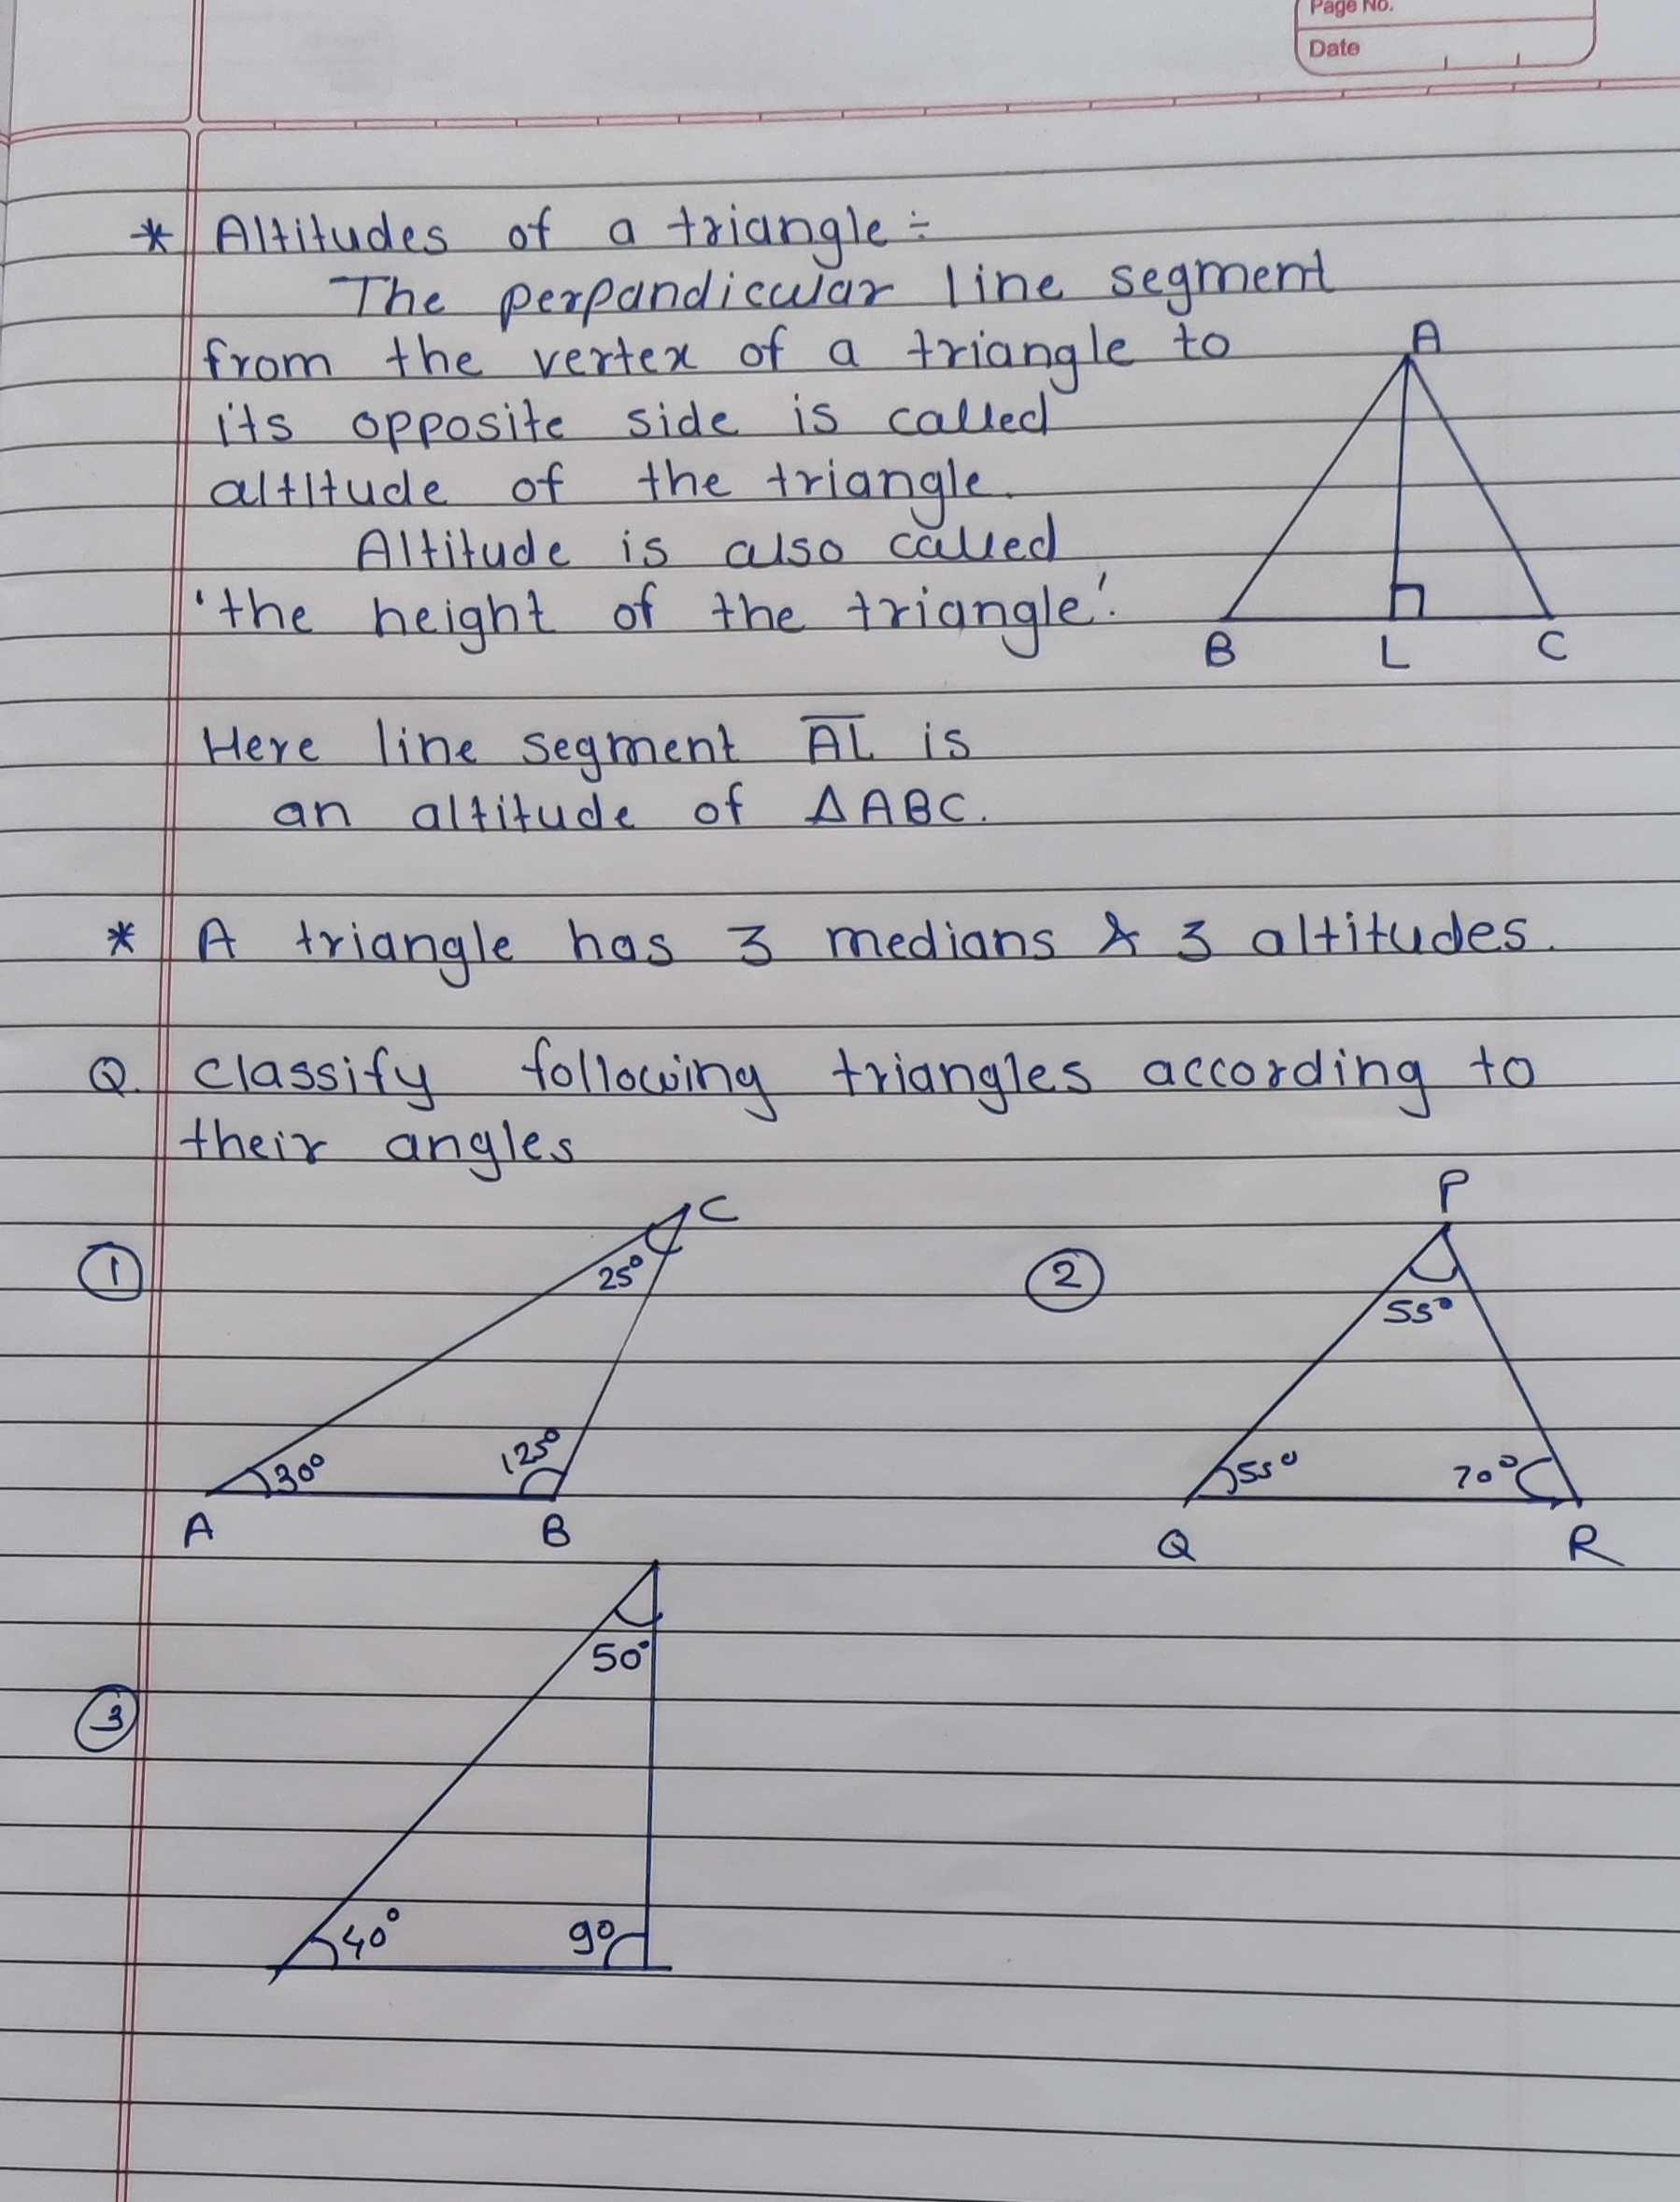 Page No.
Date
* Altitudes of a triangle ÷
The perpandicular line segment
from the vertex of a triangle to
its opposite side is called
altitude of the triangle.
Altitude is also called
'the height of the triangle'.
A
B L C
Here line segment A̅L̅ is
an altitude of ΔABC.
* A triangle has 3 medians & 3 altitudes.
Q. Classify following triangles according to
their angles
① C 25° 30° 125° A B
② P 55° 55° 70° Q R
③ 50° 40° 90